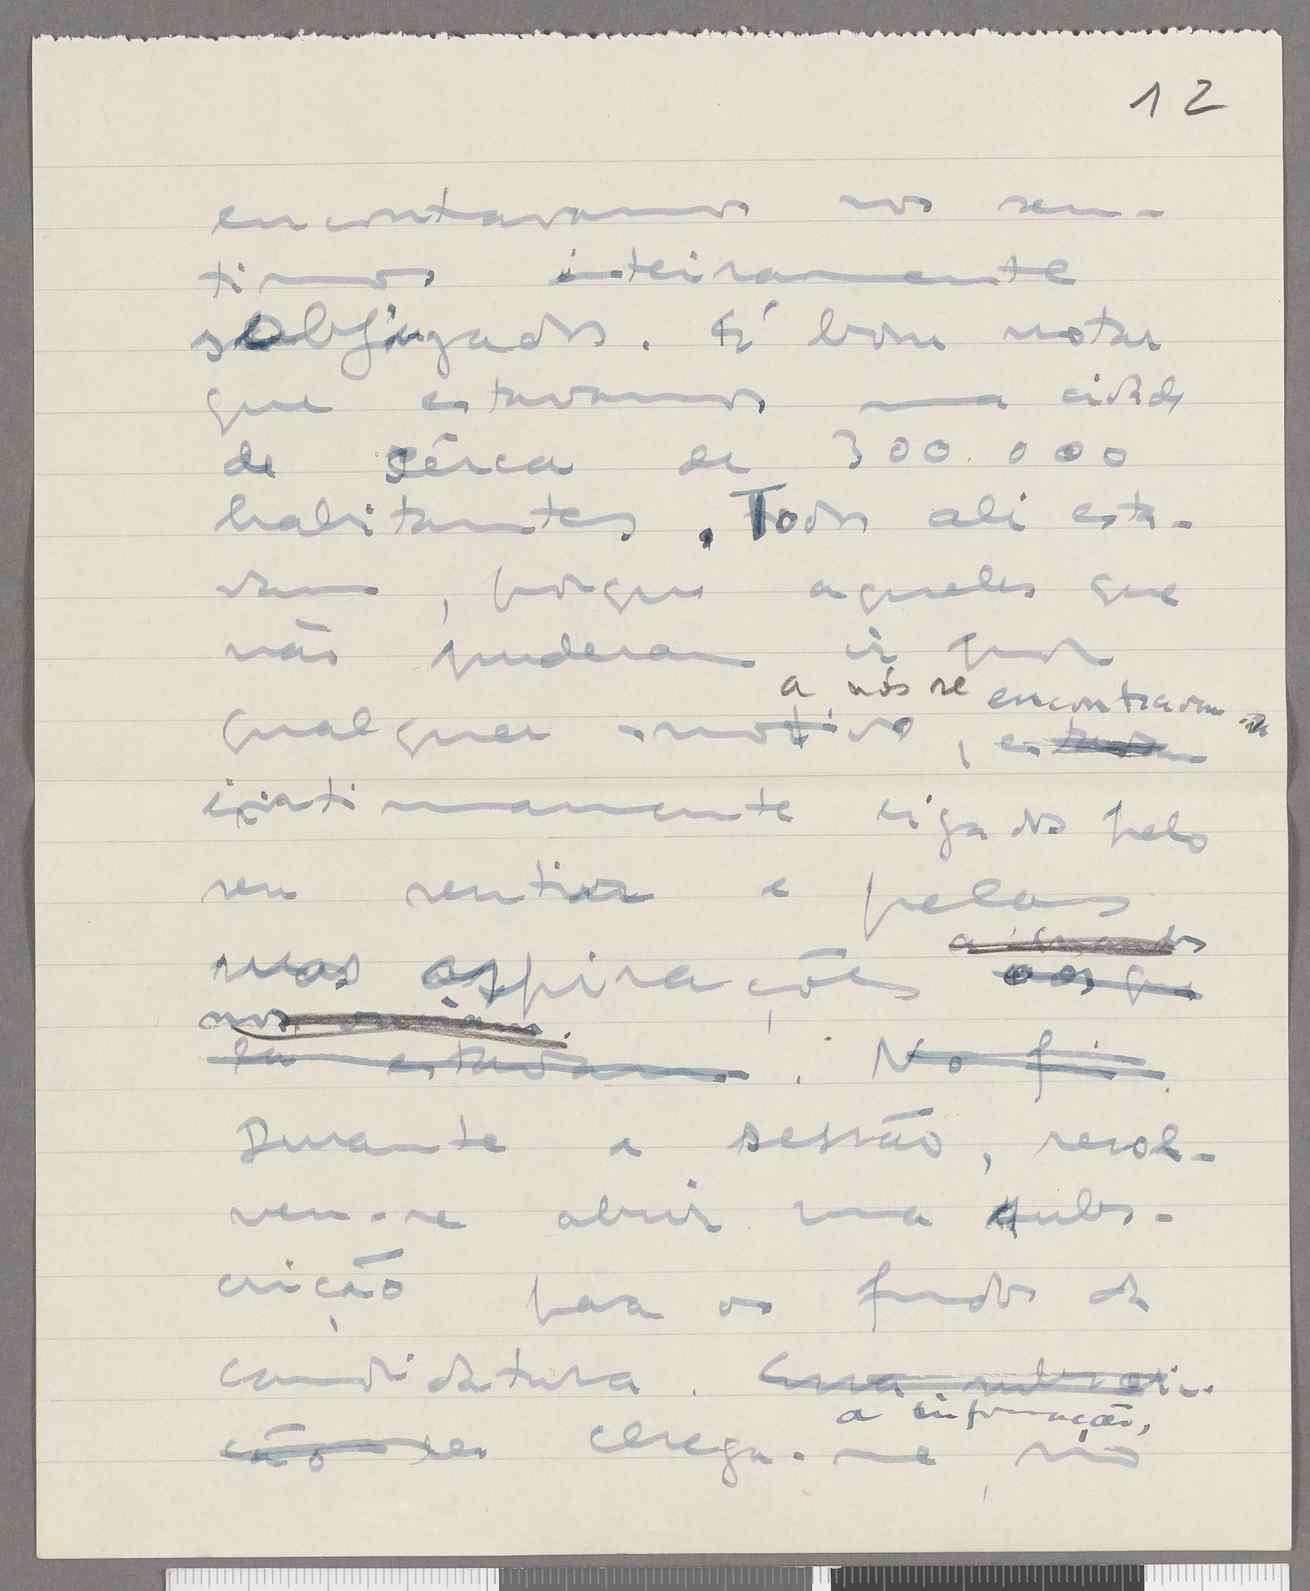 12
encontravamos nos sen-
timos inteiramente
subjugados. É bom notar
que estavamos na cidade
de cêrca de 300.000
habitantes. Todos ali esta-
vam, porque aqueles que
não puderam ir por
a nós se encontravam
qualquer motivo,
intimamente ligados pelo
seu sentir e pelas
suas aspirações aos que
la estavam. No fim
Durante a sessão, resol-
veu-se abrir uma subs-
crição para os fundos da
candidatura. Essa subscri-
a informação,
ção chega-me, não